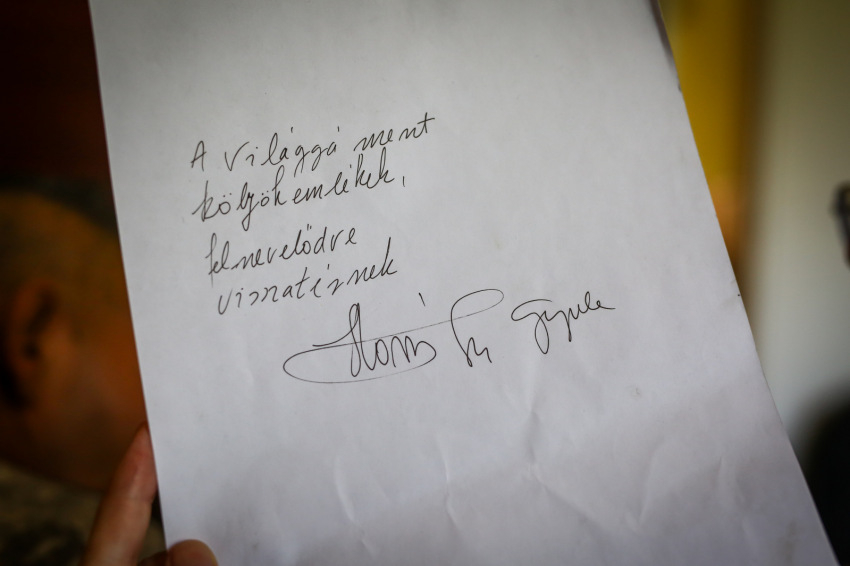 A világgá ment
kölyökemlékek,
felnevelődve
visszatérnek
Gyula